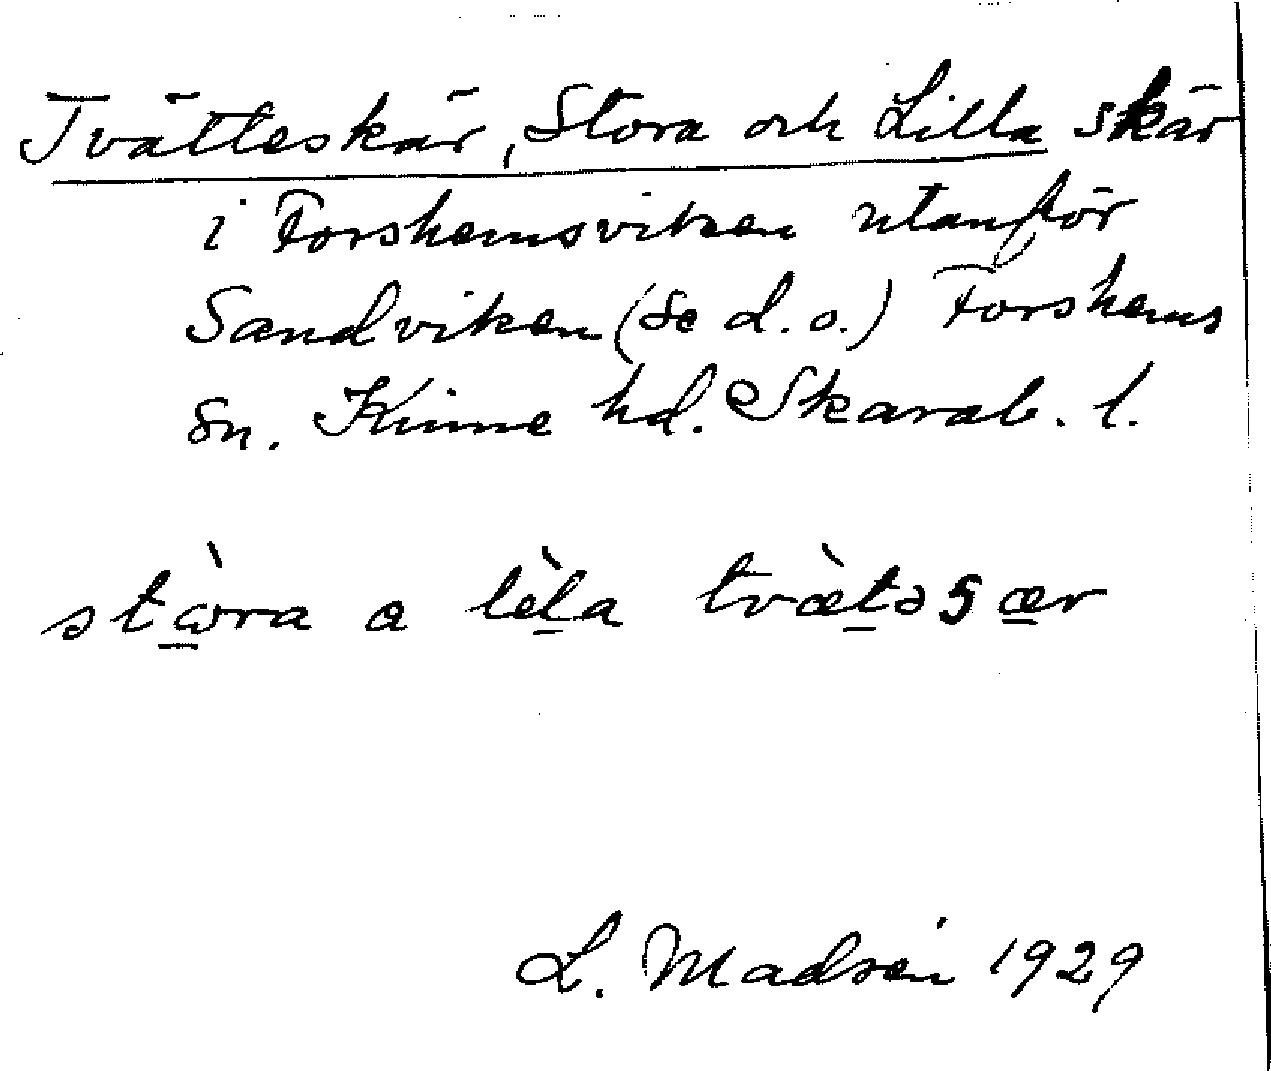 Tvätteskär, Stora och Lilla skär
i Forshemsviken utanför
Sandviken (se d. o.) Forshems
sn. Kinne hd. Skarab. l.
stɷ̀ra a lèla tvæ̀təsær
L. Madsén 1929